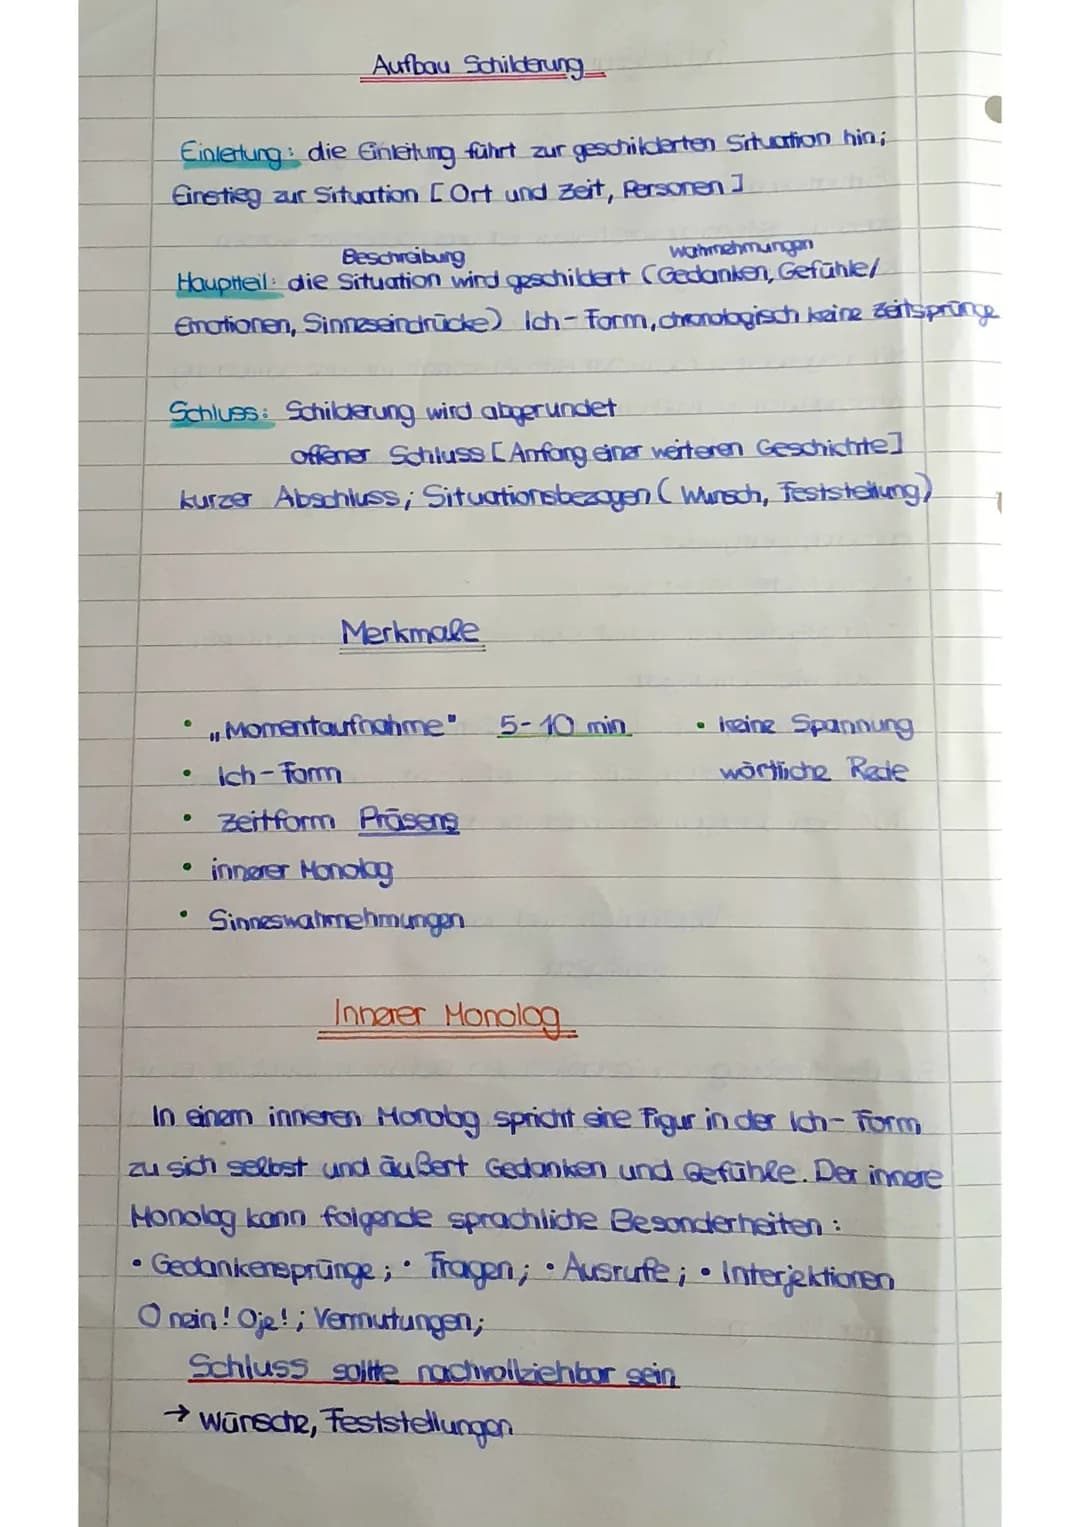 Aufbau Schilderung
Einleitung: die Einleitung führt zur geschilderten Situation hin;
Einstieg zur Situation [Ort und Zeit, Personen]
Beschreibung Wahrnehmungen
Hauptteil: die Situation wird geschildert (Gedanken, Gefühle/
Emotionen, Sinneseindrücke) Ich-Form, chronologisch keine Zeitsprünge
Schluss: Schilderung wird abgerundet
offener Schluss [Anfang einer weiteren Geschichte]
kurzer Abschluss; Situationsbezogen (Wunsch, Feststellung)
Merkmale
• „Momentaufnahme" 5-10 min • keine Spannung
• Ich-Form wörtliche Rede
• Zeitform Präsens
• innerer Monolog
• Sinneswahrnehmungen
Innerer Monolog
In einem inneren Monolog spricht eine Figur in der Ich-Form
zu sich selbst und äußert Gedanken und Gefühle. Der innere
Monolog kann folgende sprachliche Besonderheiten:
• Gedankensprünge; • Fragen; • Ausrufe; • Interjektionen
O nein! Oje!; Vermutungen;
Schluss sollte nachvollziehbar sein
→ Wünsche, Feststellungen